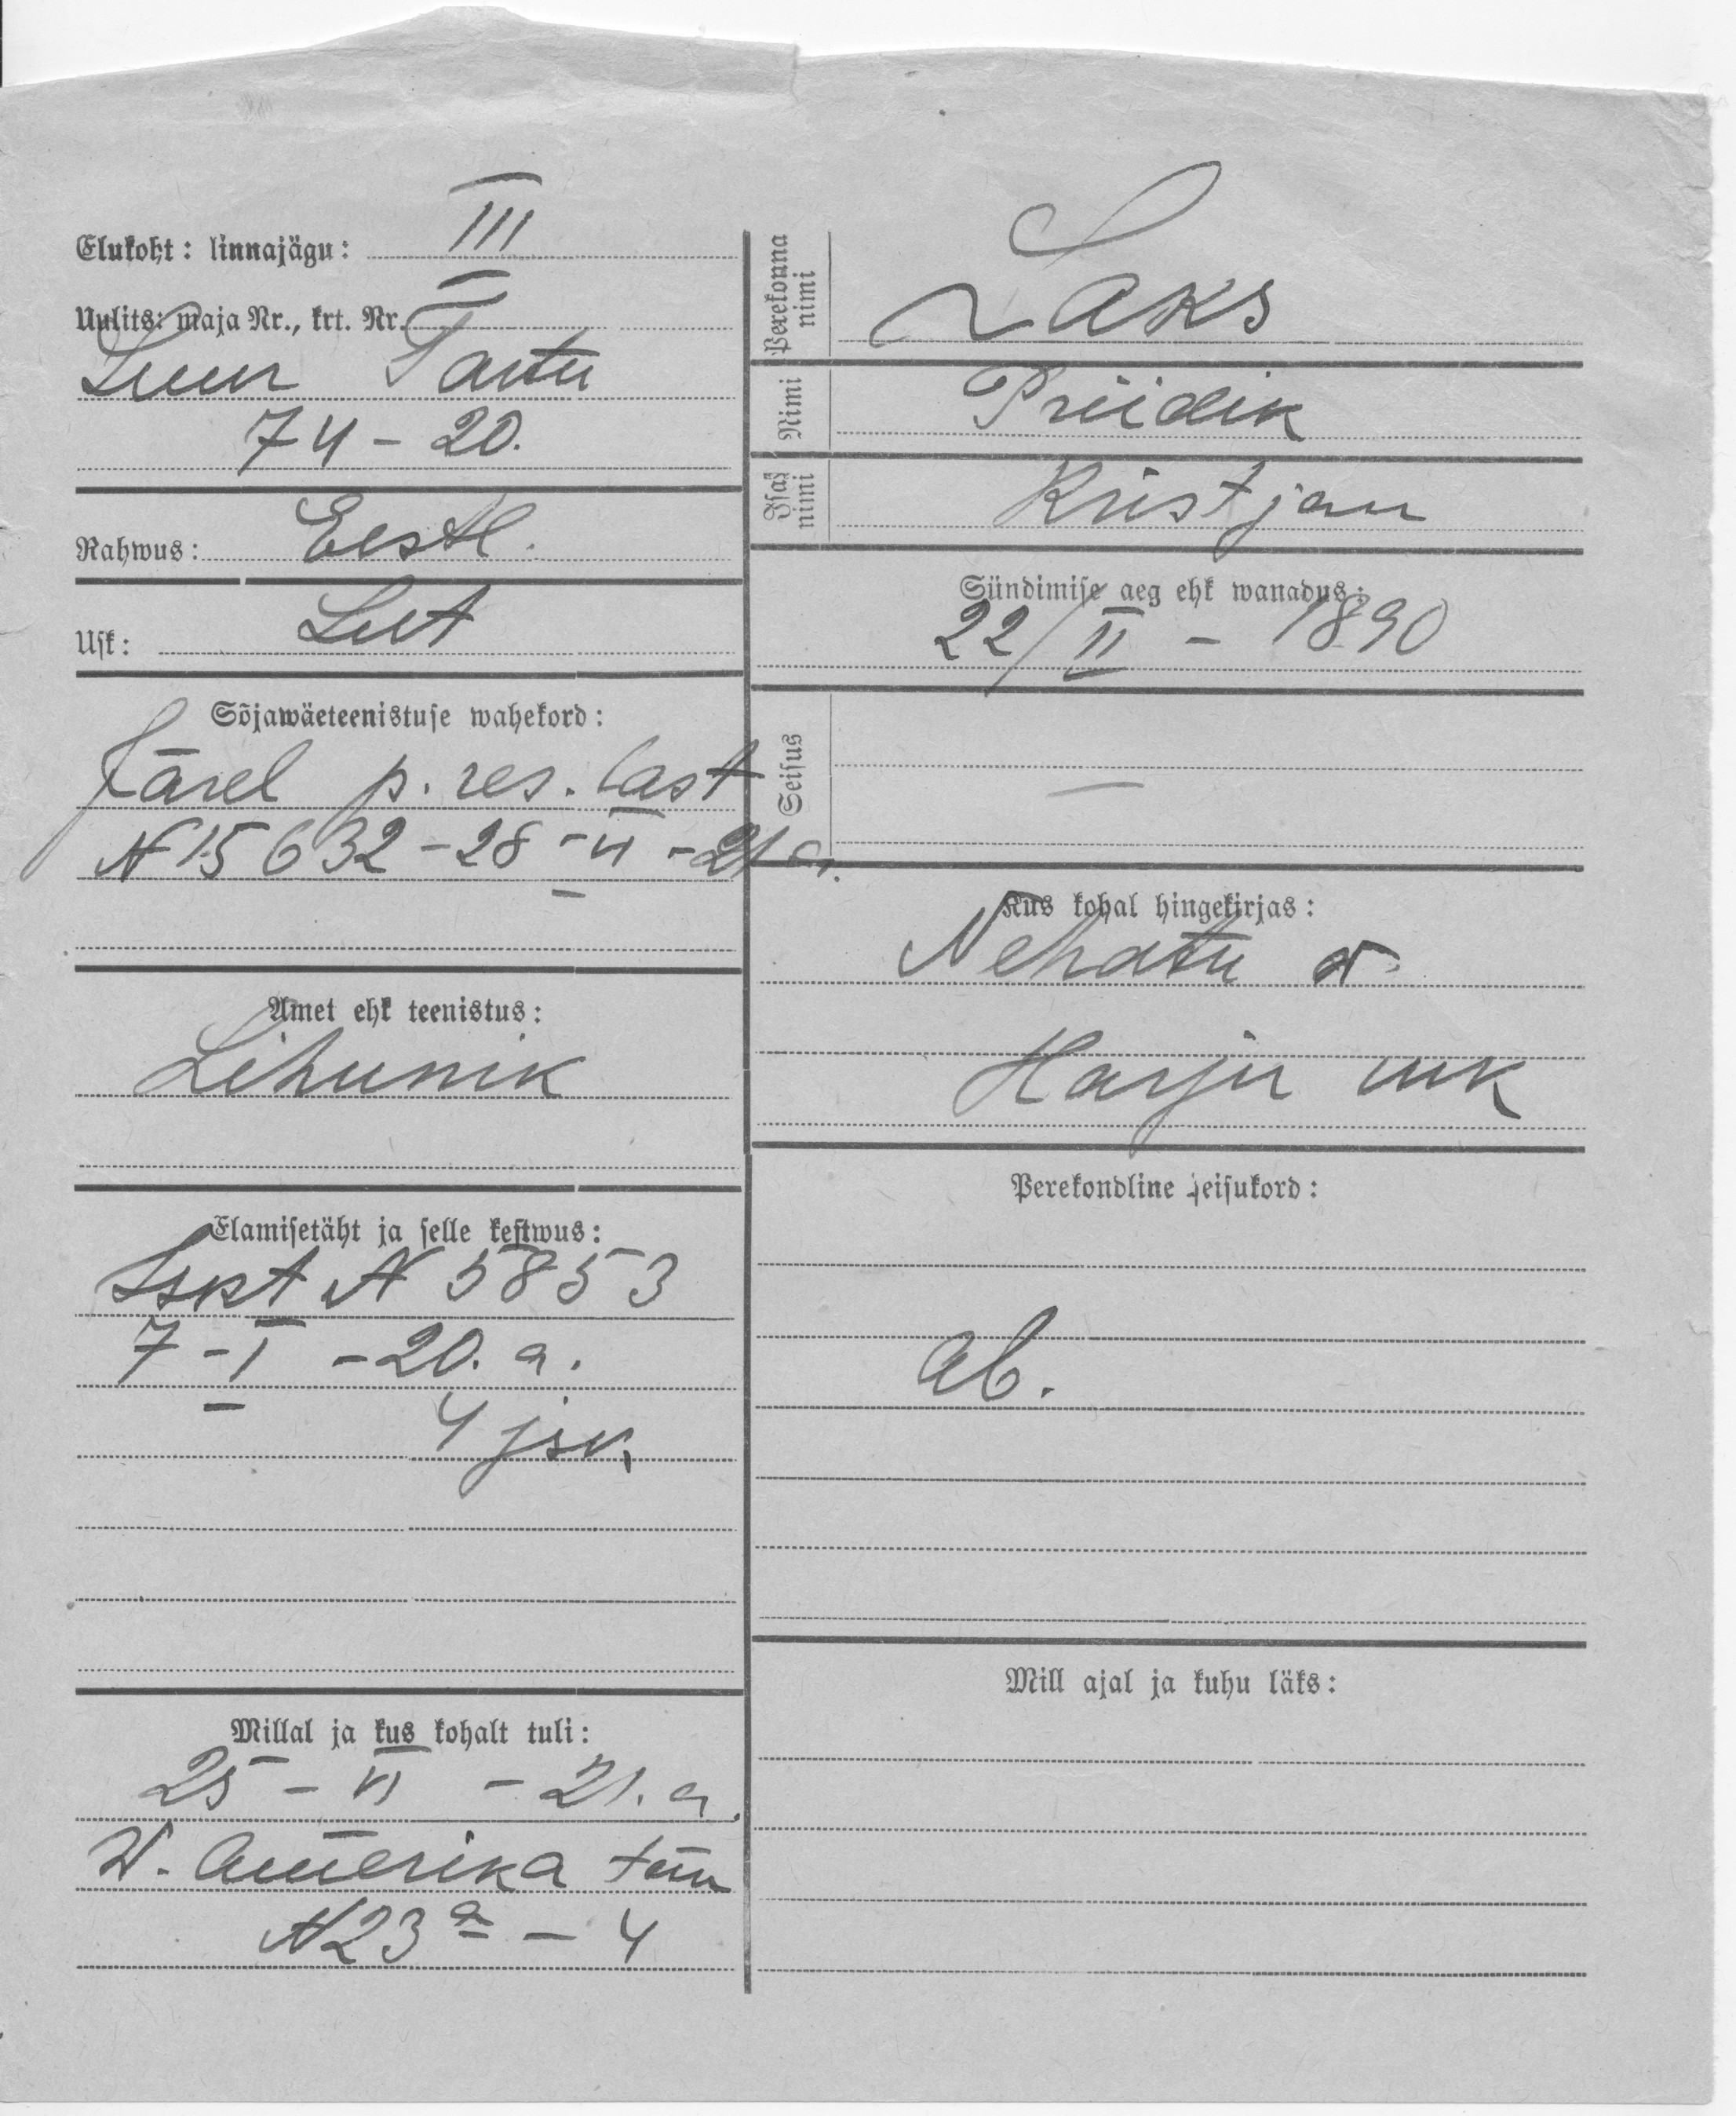 Elukoht: linnajägu: III
Uulits: maja Nr., krt. Nr.
Suur Tartu
74 - 20.
Rahwus: Eestl.
Usk: Lut
Sõjawäeteenistuse wahekord:
Järel p. res. last
N 15632 - 28 - VI - 21 a.
Amet ehk teenistus:
Lihunik
Elamisetäht ja selle kestwus:
Iskt N 5853
7 - I - 20. a.
4 jsk.
Millal ja kus kohalt tuli:
25 - VI - 21. a.
W. Amerika tän
N 23 a - 4
Perekonna nimi
Laks
Nimi
Priidik
Isa nimi
Kristjan
Sündimise aeg ehk wanadus:
22/II - 1890
Seisus
—
Kus kohal hingekirjas:
Nehatu w.
Harju mk
Perekondline seisukord:
ab.
Mill ajal ja kuhu läks: